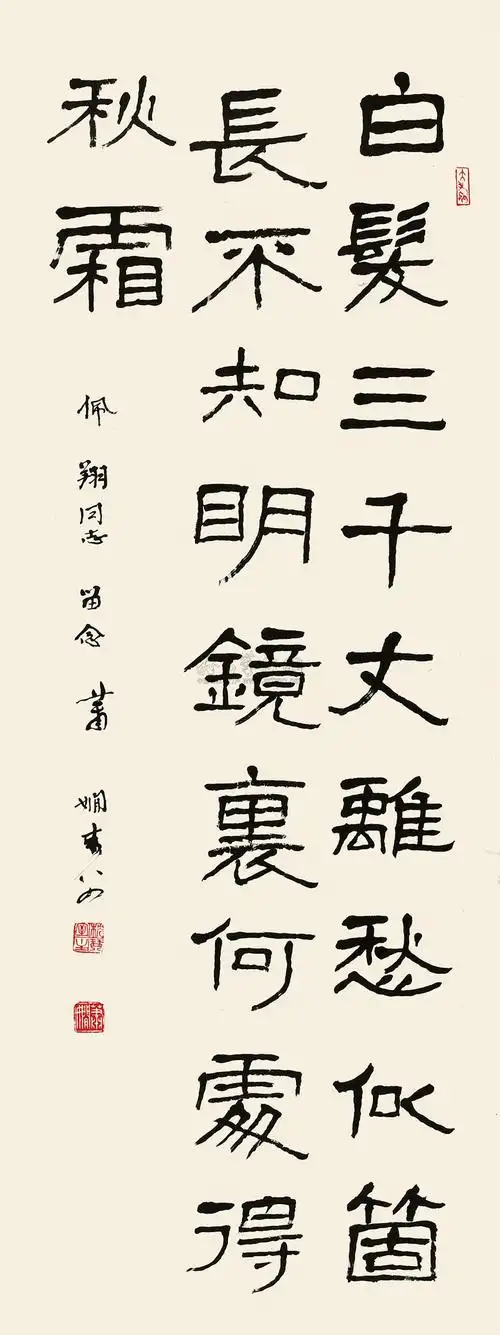 白髮三千丈離愁似箇
長不知眀鏡裏何處得
秋霜
佩翔同志留念 蕭嫻書